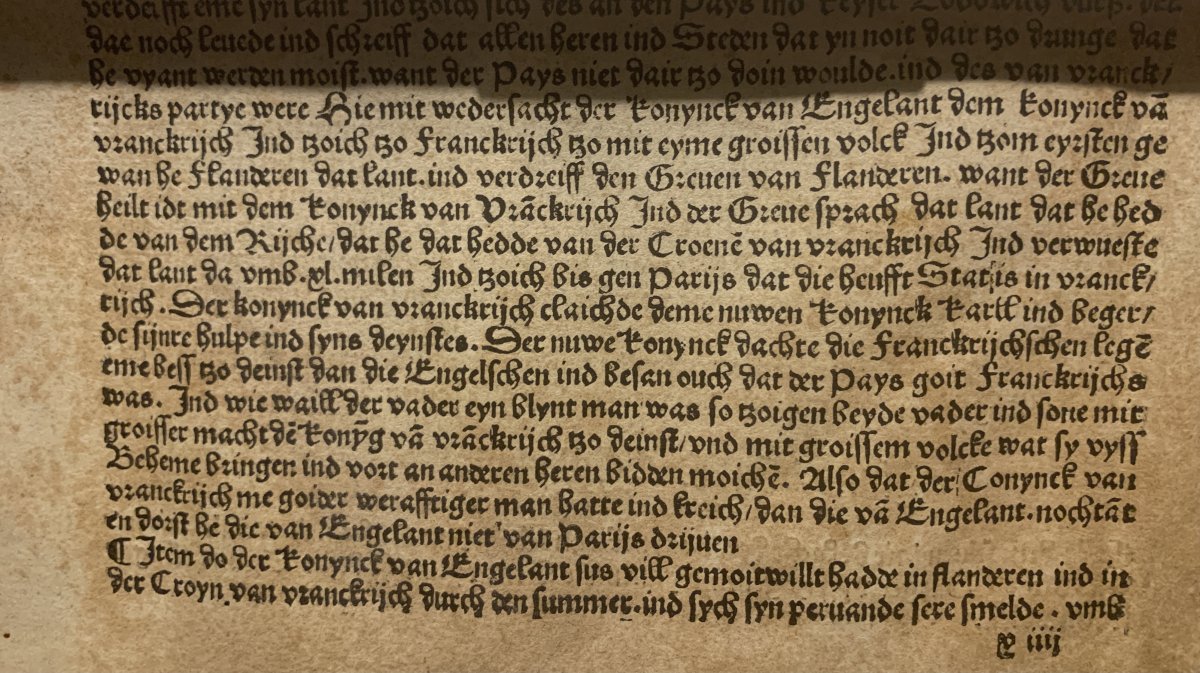 verdeifft eme syn lant Ind tzoich sich des an den Pays ind Keyser Lodowich
dae noch leuede ind schreiff dat allen heren ind Steden dat yn noit dair tzo drunge dat
he vyant werden moist. want der Pays niet dair tzo doin woulde. ind des van vranck/
rijcks partye were Hie mit wedersacht der Konynck van Engelant dem Konynck vā
vranckrijch Ind tzoich tzo Franckrijch tzo mit eyme groissen volck Ind tzom eyrsten ge
wan he Flanderen dat lant. ind verdreiff den Greuen van Flanderen. want der Greue
heilt idt mit dem Konynck van Vrāckrijch Ind der Greue sprach dat lant dat he hed
de van dem Rijche/ dat he dat hedde van der Croenē van vranckrijch Ind verwueste
dat lant da vmb. xl. milen Ind tzoich bis gen Parijs dat die heufft Statijs in vranck/
rijch. Der konynck van vranckrijch claichde deme nuwen Konynck Karll ind beger/
de sijnre hulpe ind syns deynstes. Der nuwe Konynck dachte die Franckrijchschen legē
eme bess tzo deinst dan die Engelschen ind besan ouch dat der Pays goit Franckrijchs
was. Ind wie waill der vader eyn blynt man was so tzoigen beyde vader ind sone mit
groisser macht dē Konyg vā vrāckrijch tzo deinst/ vnd mit groissem volcke wat sy vyss
Beheme bringen ind vort an anderen heren bidden moichē. Also dat der Conynck van
vranckrijch me goider werafftiger man hatte ind kreich/ dan die vā Engelant. nochtāt
en dorst he die van Engelant niet van Parijs drijuen
¶ Item do der Konynck van Engelant sus vill gemoitwillt hadde in flanderen ind in
der Croyn van vranckrijch durch den summer. ind sych syn peruande sere smelde. vmb
y iiij